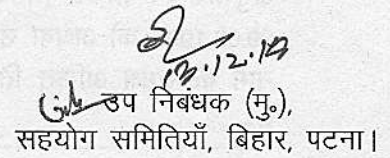 13.12.14
उप निबंधक (मु०),
सहयोग समितियाँ, बिहार, पटना।